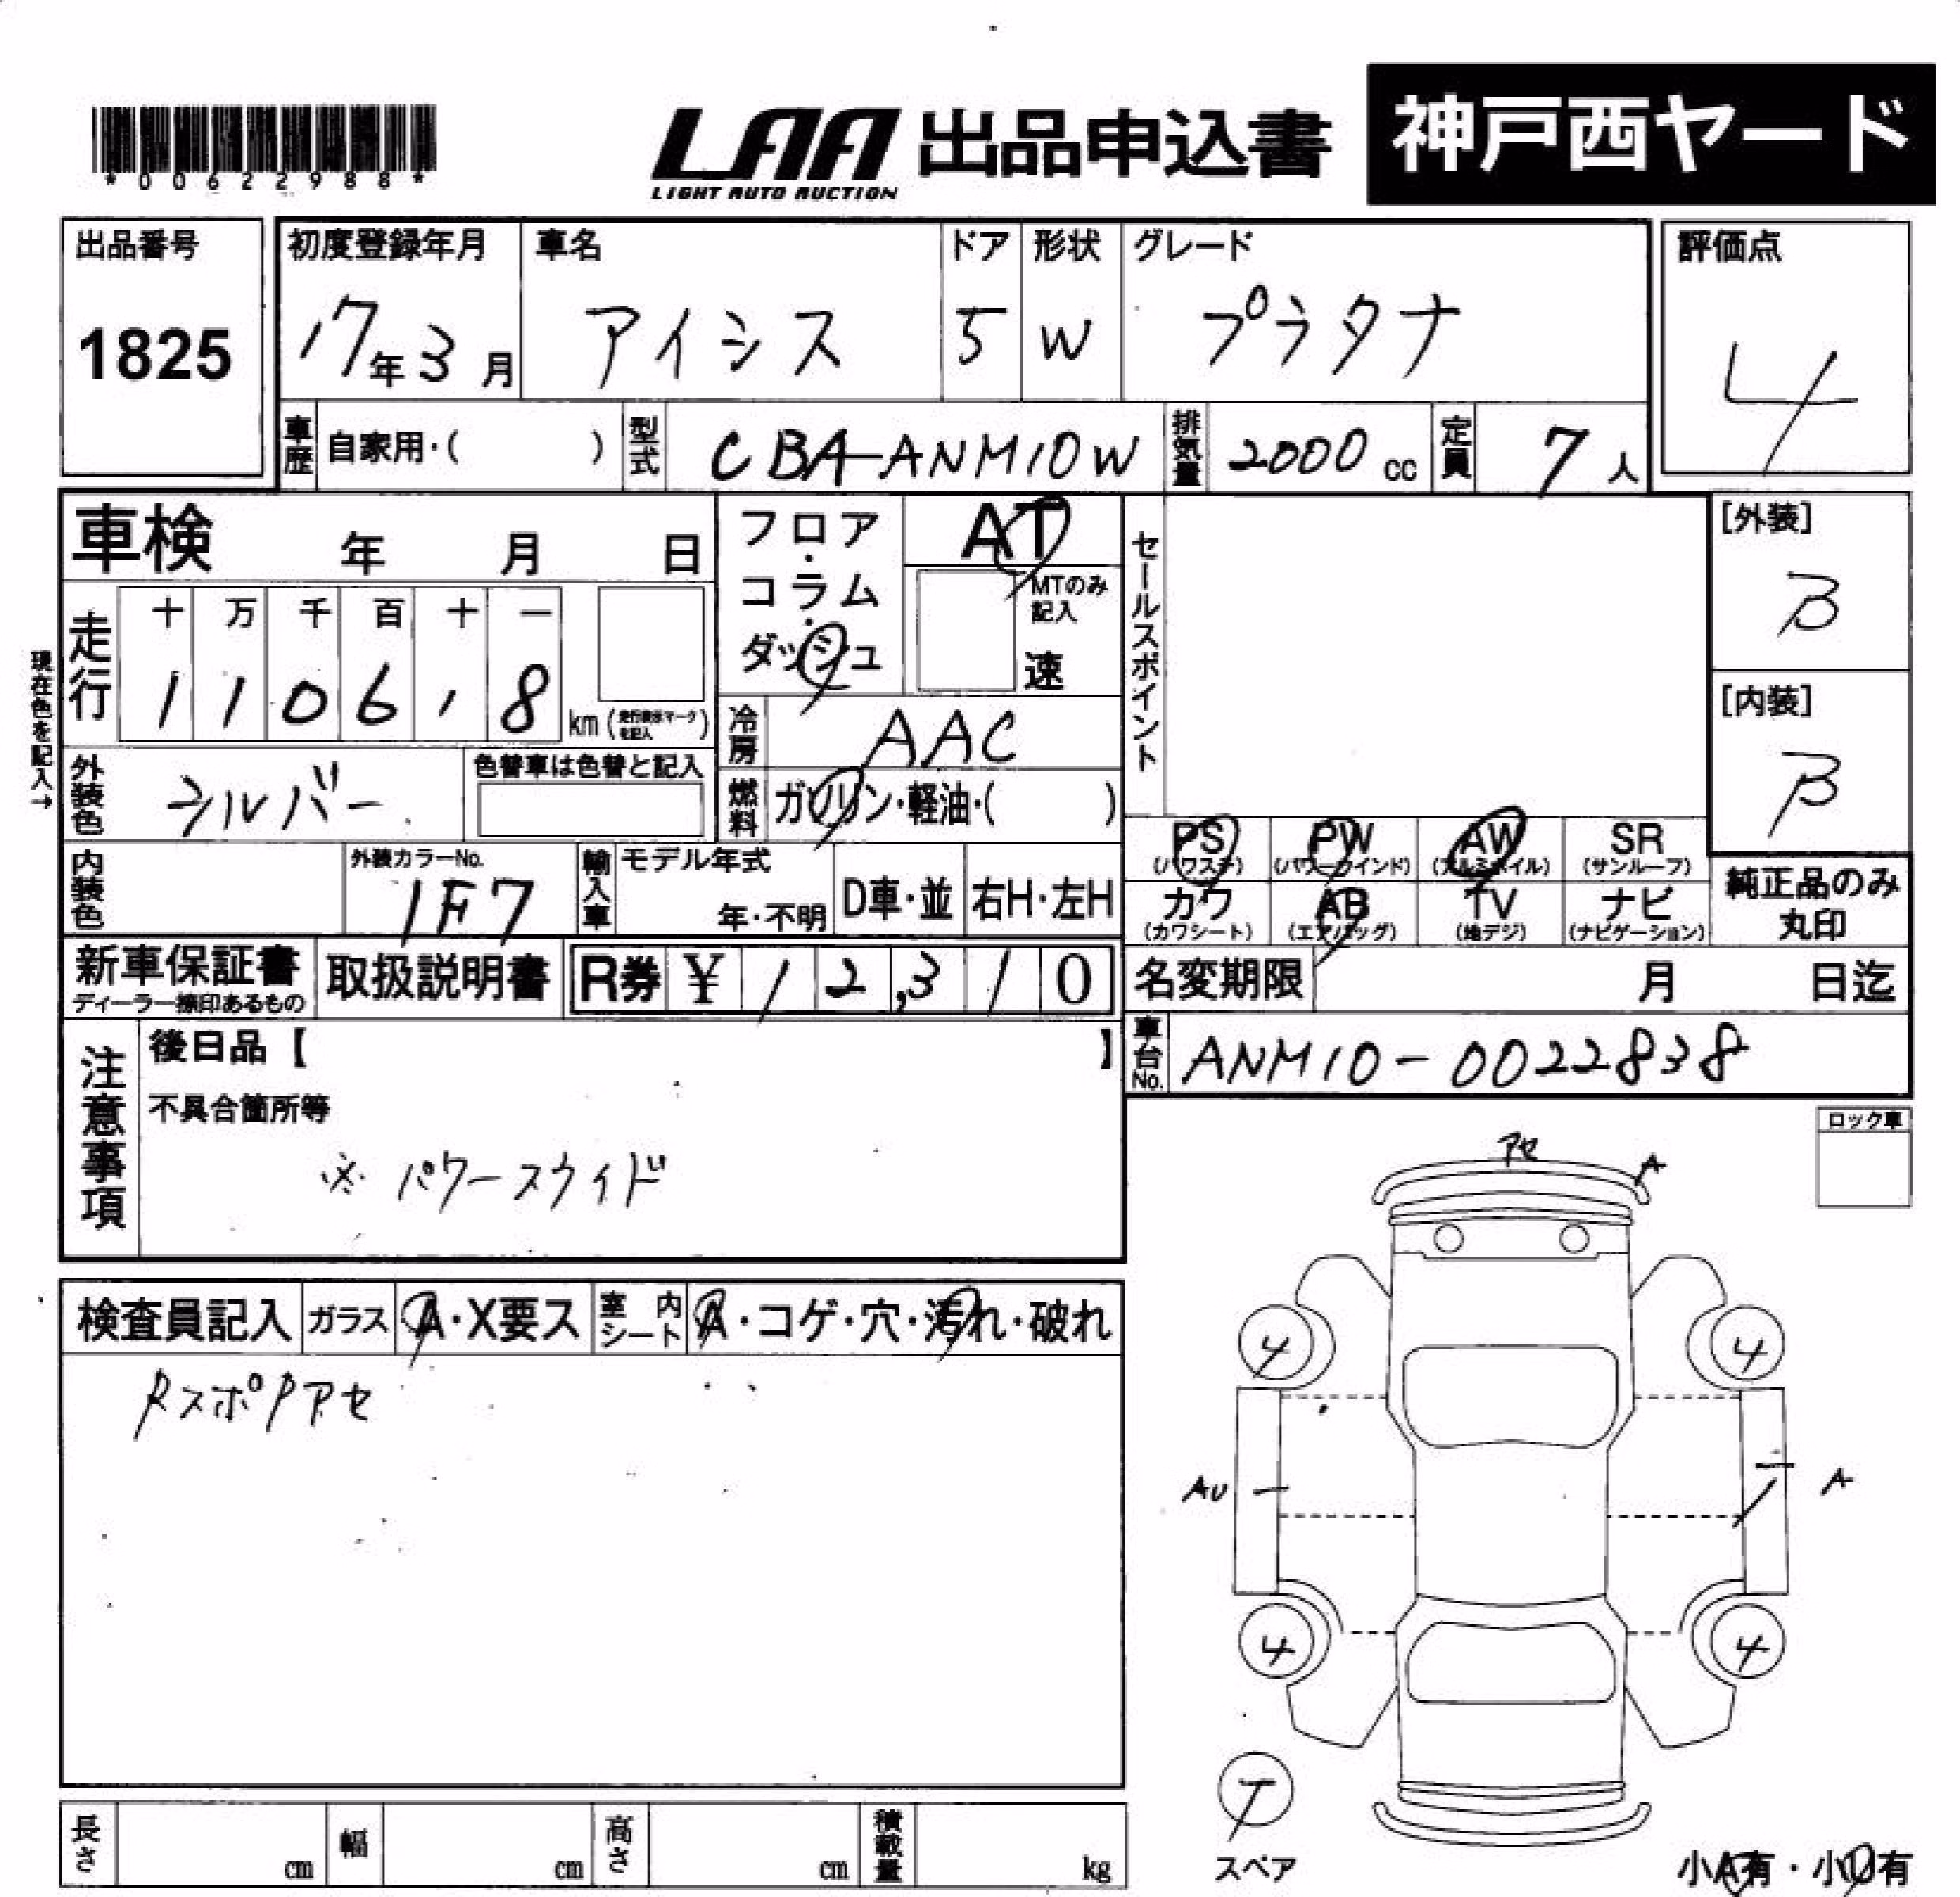 *00622988*
LAA 出品申込書 神戸西ヤード
LIGHT AUTO AUCTION
出品番号 初度登録年月 車名 ドア 形状 グレード 評価点
1825 17年3月 アイシス 5 W プラタナ 4
車歴 自家用・( ) 型式 CBA-ANM10W 排気量 2000 cc 定員 7 人
車検 年 月 日 フロア・コラム・ダッシュ AT セールスポイント [外装]
B
MTのみ記入
速
現在色を記入→
走行 十 万 千 百 十 一
1 1 0 6 1 8 km (走行表示マークを記入)
[内装]
B
冷房 AAC
外装色 シルバー 色替車は色替と記入 燃料 ガソリン・軽油・( )
PS AW PW SR
(パワステ) (パワーウインド) (アルミホイル) (サンルーフ)
内装色 外装カラーNo. 輸入車 モデル年式
1F7 年・不明 D車・並 右H・左H
カワ AB TV ナビ 純正品のみ
(カワシート) (エアバッグ) (地デジ) (ナビゲーション) 丸印
新車保証書 取扱説明書 R券 ¥ 1 2,3 1 0 名変期限 月 日迄
ディーラー捺印あるもの
注意事項 後日品【 】 車台No. ANM10-0022838
不具合箇所等
※ パワースライド
ロック車
アセ A
検査員記入 ガラス A・X要ス 室内シート A・コゲ・穴・汚れ・破れ
RスポPアセ
4 4
AU A
4 4
T
スペア
長さ cm 幅 cm 高さ cm 積載量 kg
小A有・小U有